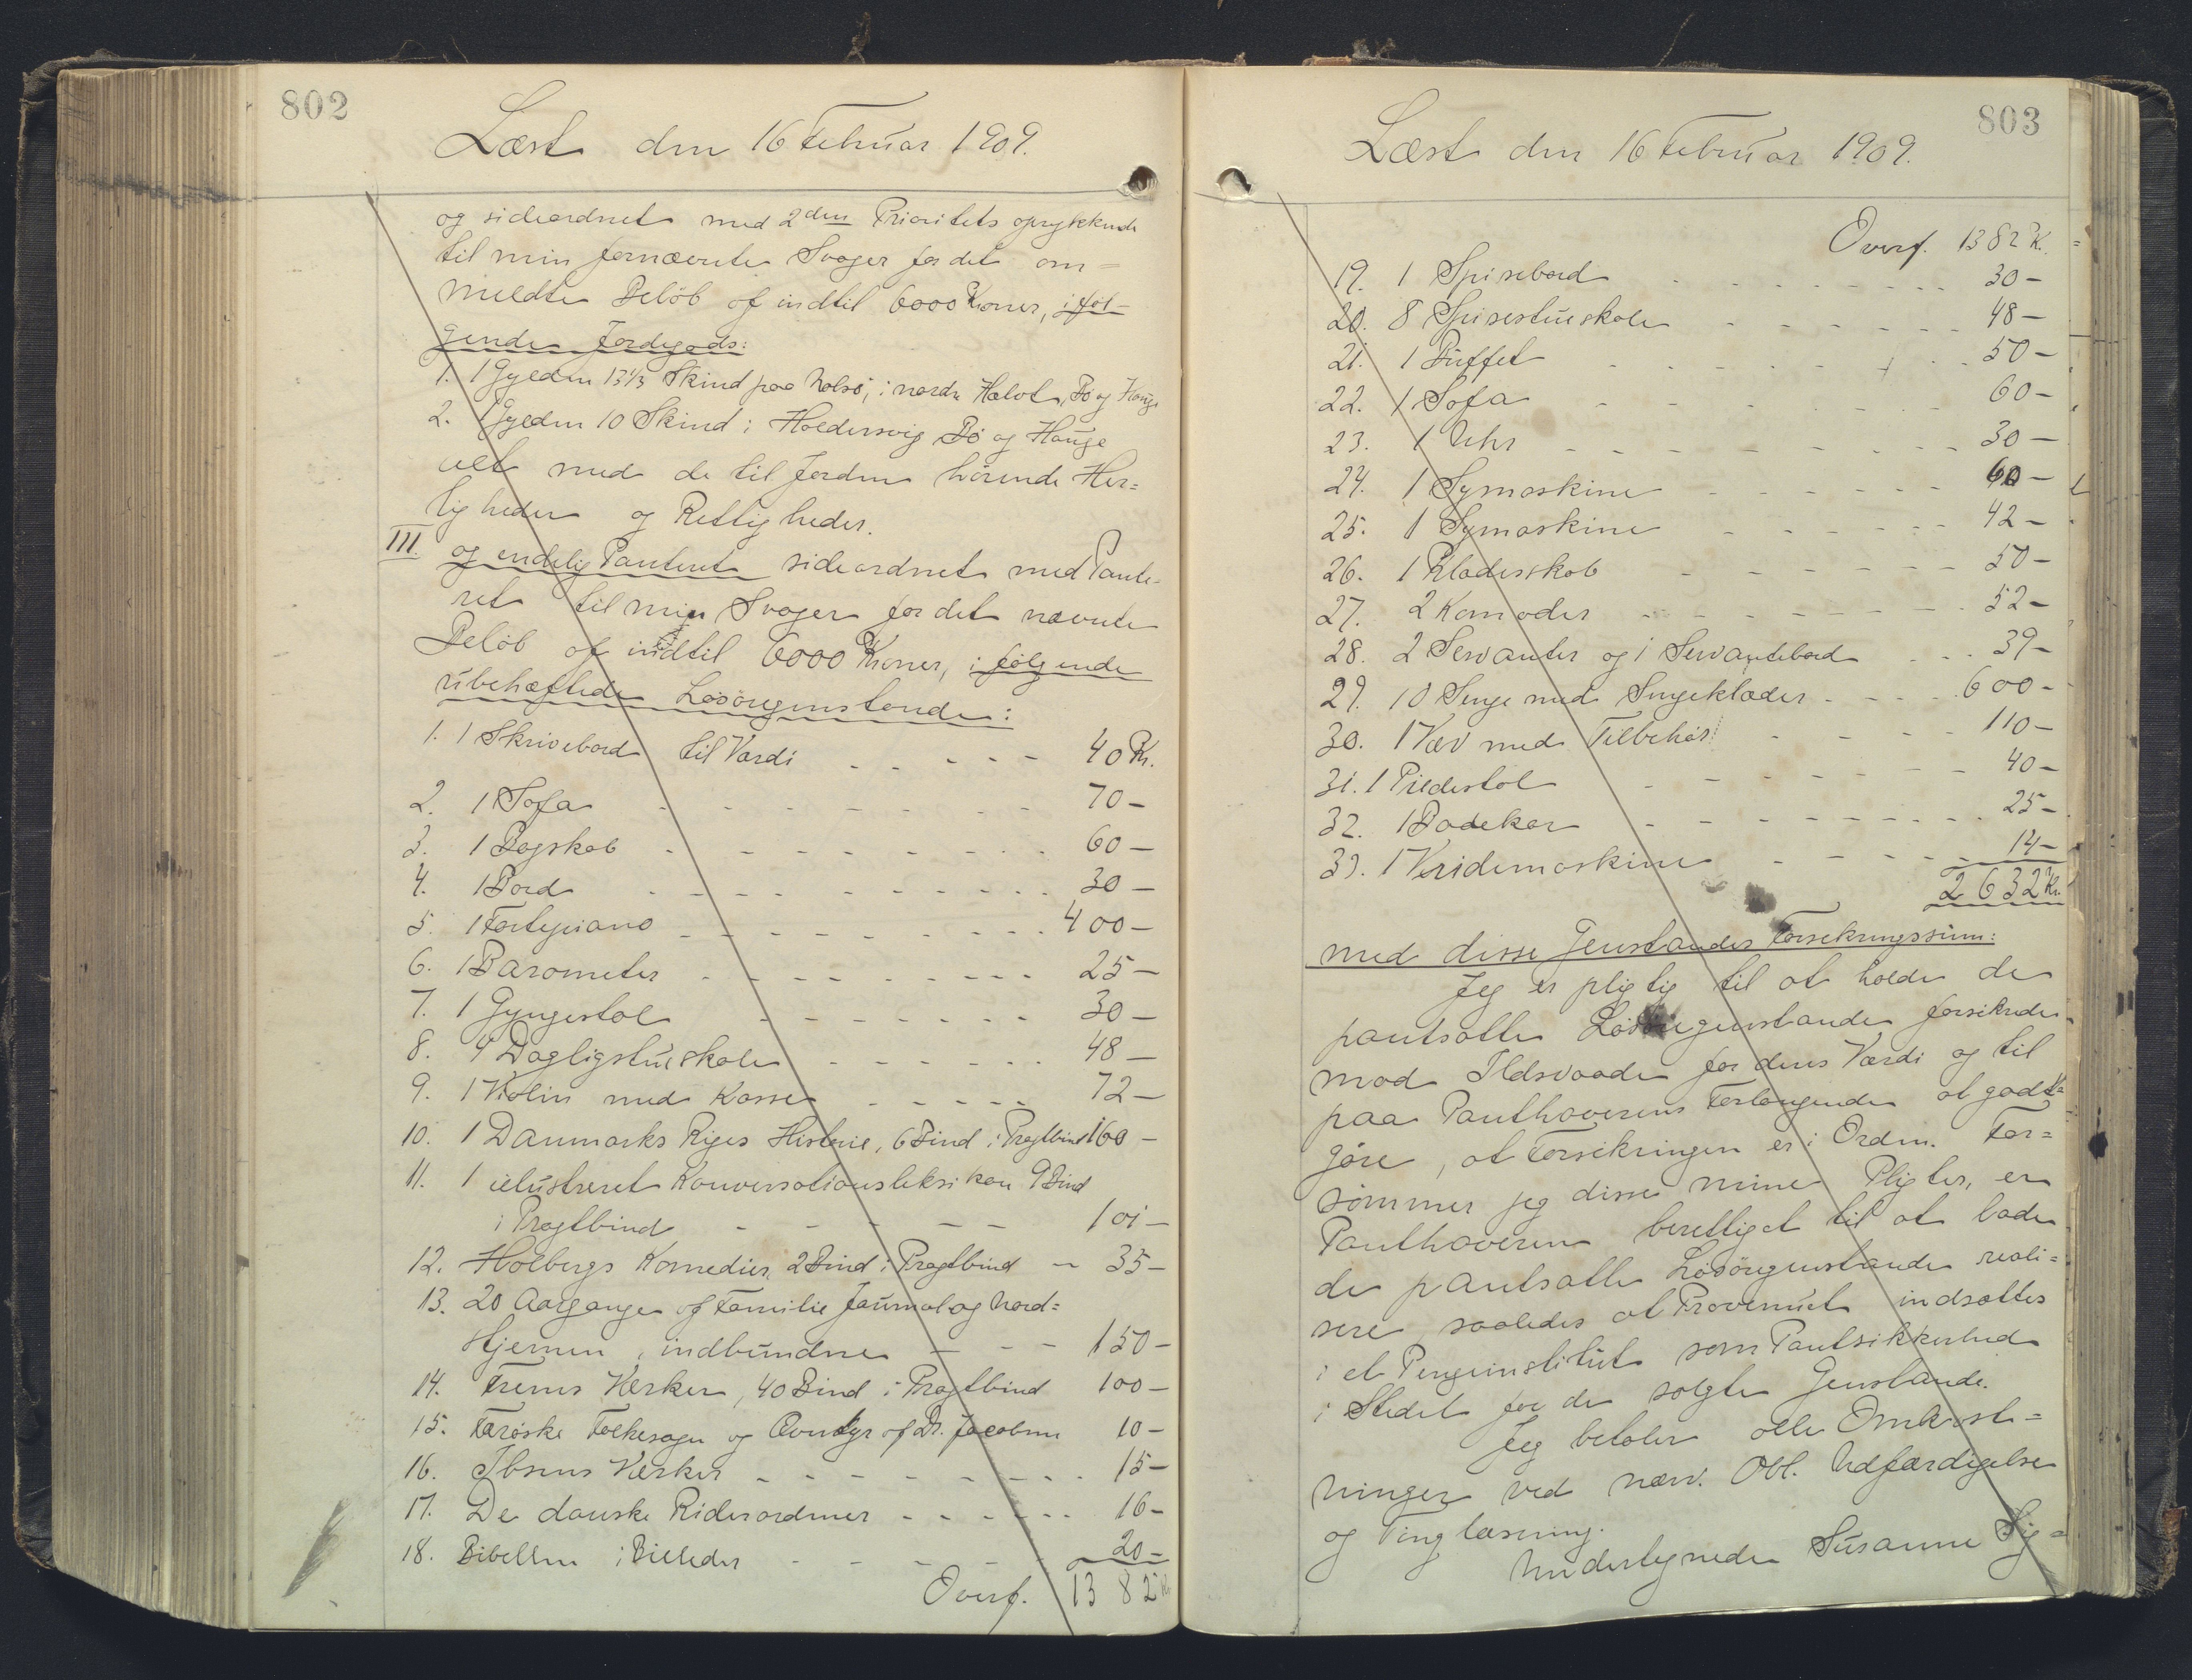 802
Læst den 16 Februar 1909.
og sideordnet med 2den Prioritets oprykkende
til min fornævnte Svoger for det om=
meldte Beløb af indtil 6000 Kroner, i føl-
gende Jordegods:
1. 1 Gylden 13 1/3 Skind paa Nolsø, i nordre Halvt, Bø og Hauge
2. 1 Gylden 10 Skind i Holdersvig Bø og Hauge
alt med de til Jorden hørende Her=
ligheder og Rettigheder.
III og endelig Panteret sideordnet med Pante-
ret til min Svoger for det nævnte
Beløb af indtil 6000 Kroner, i følgende
ubehæftede Løsøregenstande:
1. 1 Skrivebord til Værdi - - - - - 40 Kr.
2. 1 Sofa - - - - - 70 -
3. 1 Bogskab - - - - - 60 -
4. 1 Bord - - - - - 30 -
5. 1 Fortepiano - - - - - 400 -
6. 1 Barometer - - - - - 25 -
7. 1 Gyngestol - - - - - 30 -
8. 4 Dagligstueskole - - - - - 48 -
9. 1 Violin med Kasse - - - - - 72 -
10. 1 Danmarks Riges Historie, 6 Bind i Pragtbind 160 -
11. 1 illustreret Konversationsleksikon 9 Bind
i Pragtbind - - - - - 101 -
12. Holbergs Komedier, 2 Bind i Pragtbind - 35 -
13. 20 Aargange af Familie Journal og Nord=
Hjemmen, indbundne - - - 150 -
14. Frems Værker, 40 Bind i Pragtbind 100 -
15. Færøske Folkesagn og Æventyr af Dr. Jacobsen 10 -
16. Ibsens Værker - - - - - 15 -
17. De danske Ridderordener - - - - - 16 -
18. Bibellen i Billeder - - - - - 20 -
Overf. 1382 Kr.
803
Læst den 16 Februar 1909.
Overf. 1382 K.
19. 1 Spisebord - - - - - 30 -
20. 8 Spisestueskole - - - - - 48 -
21. 1 Buffet - - - - - 50 -
22. 1 Sofa - - - - - 60 -
23. 1 Uhr - - - - - 30 -
24. 1 Symaskine - - - - - 60 -
25. 1 Symaskine - - - - - 42 -
26. 1 Klædesskab - - - - - 50 -
27. 2 Komoder - - - - - 52 -
28. 2 Servanter og 1 Servantebord - - - 39 -
29. 10 Senge med Sengeklæder - - - 600 -
30. 1 Væv med Tilbehør - - - - 110 -
31. 1 Pildestol - - - - - 40 -
32. 1 Badekar - - - - - 25 -
33. 1 Vridemaskine - - - - - 14 -
2632 Kr.
med disse Genstandes Forsekringssum:
Jeg er pligtig til at holde de
pantsatte Løsøregenstande forsikrede
mod Ildsvaade for deres Værdi og til
paa Panthaverens Forlangende at godt=
gøre, at Forsikringen er i Orden. For=
sømmer jeg disse mine Pligter, er
Panthaveren berettiget til at lade
de pantsatte Løsøregenstande reali=
sere, saaledes at Provenuet indsættes
i et Pengeinstitut som Pantsikkerhed
i Stedet for de solgte Genstande.
Jeg betaler alle Omkost=
ninger ved nærv. Obl. Udfærdigelse
og Tinglæsning.
Undertegnede Susanne Sig=